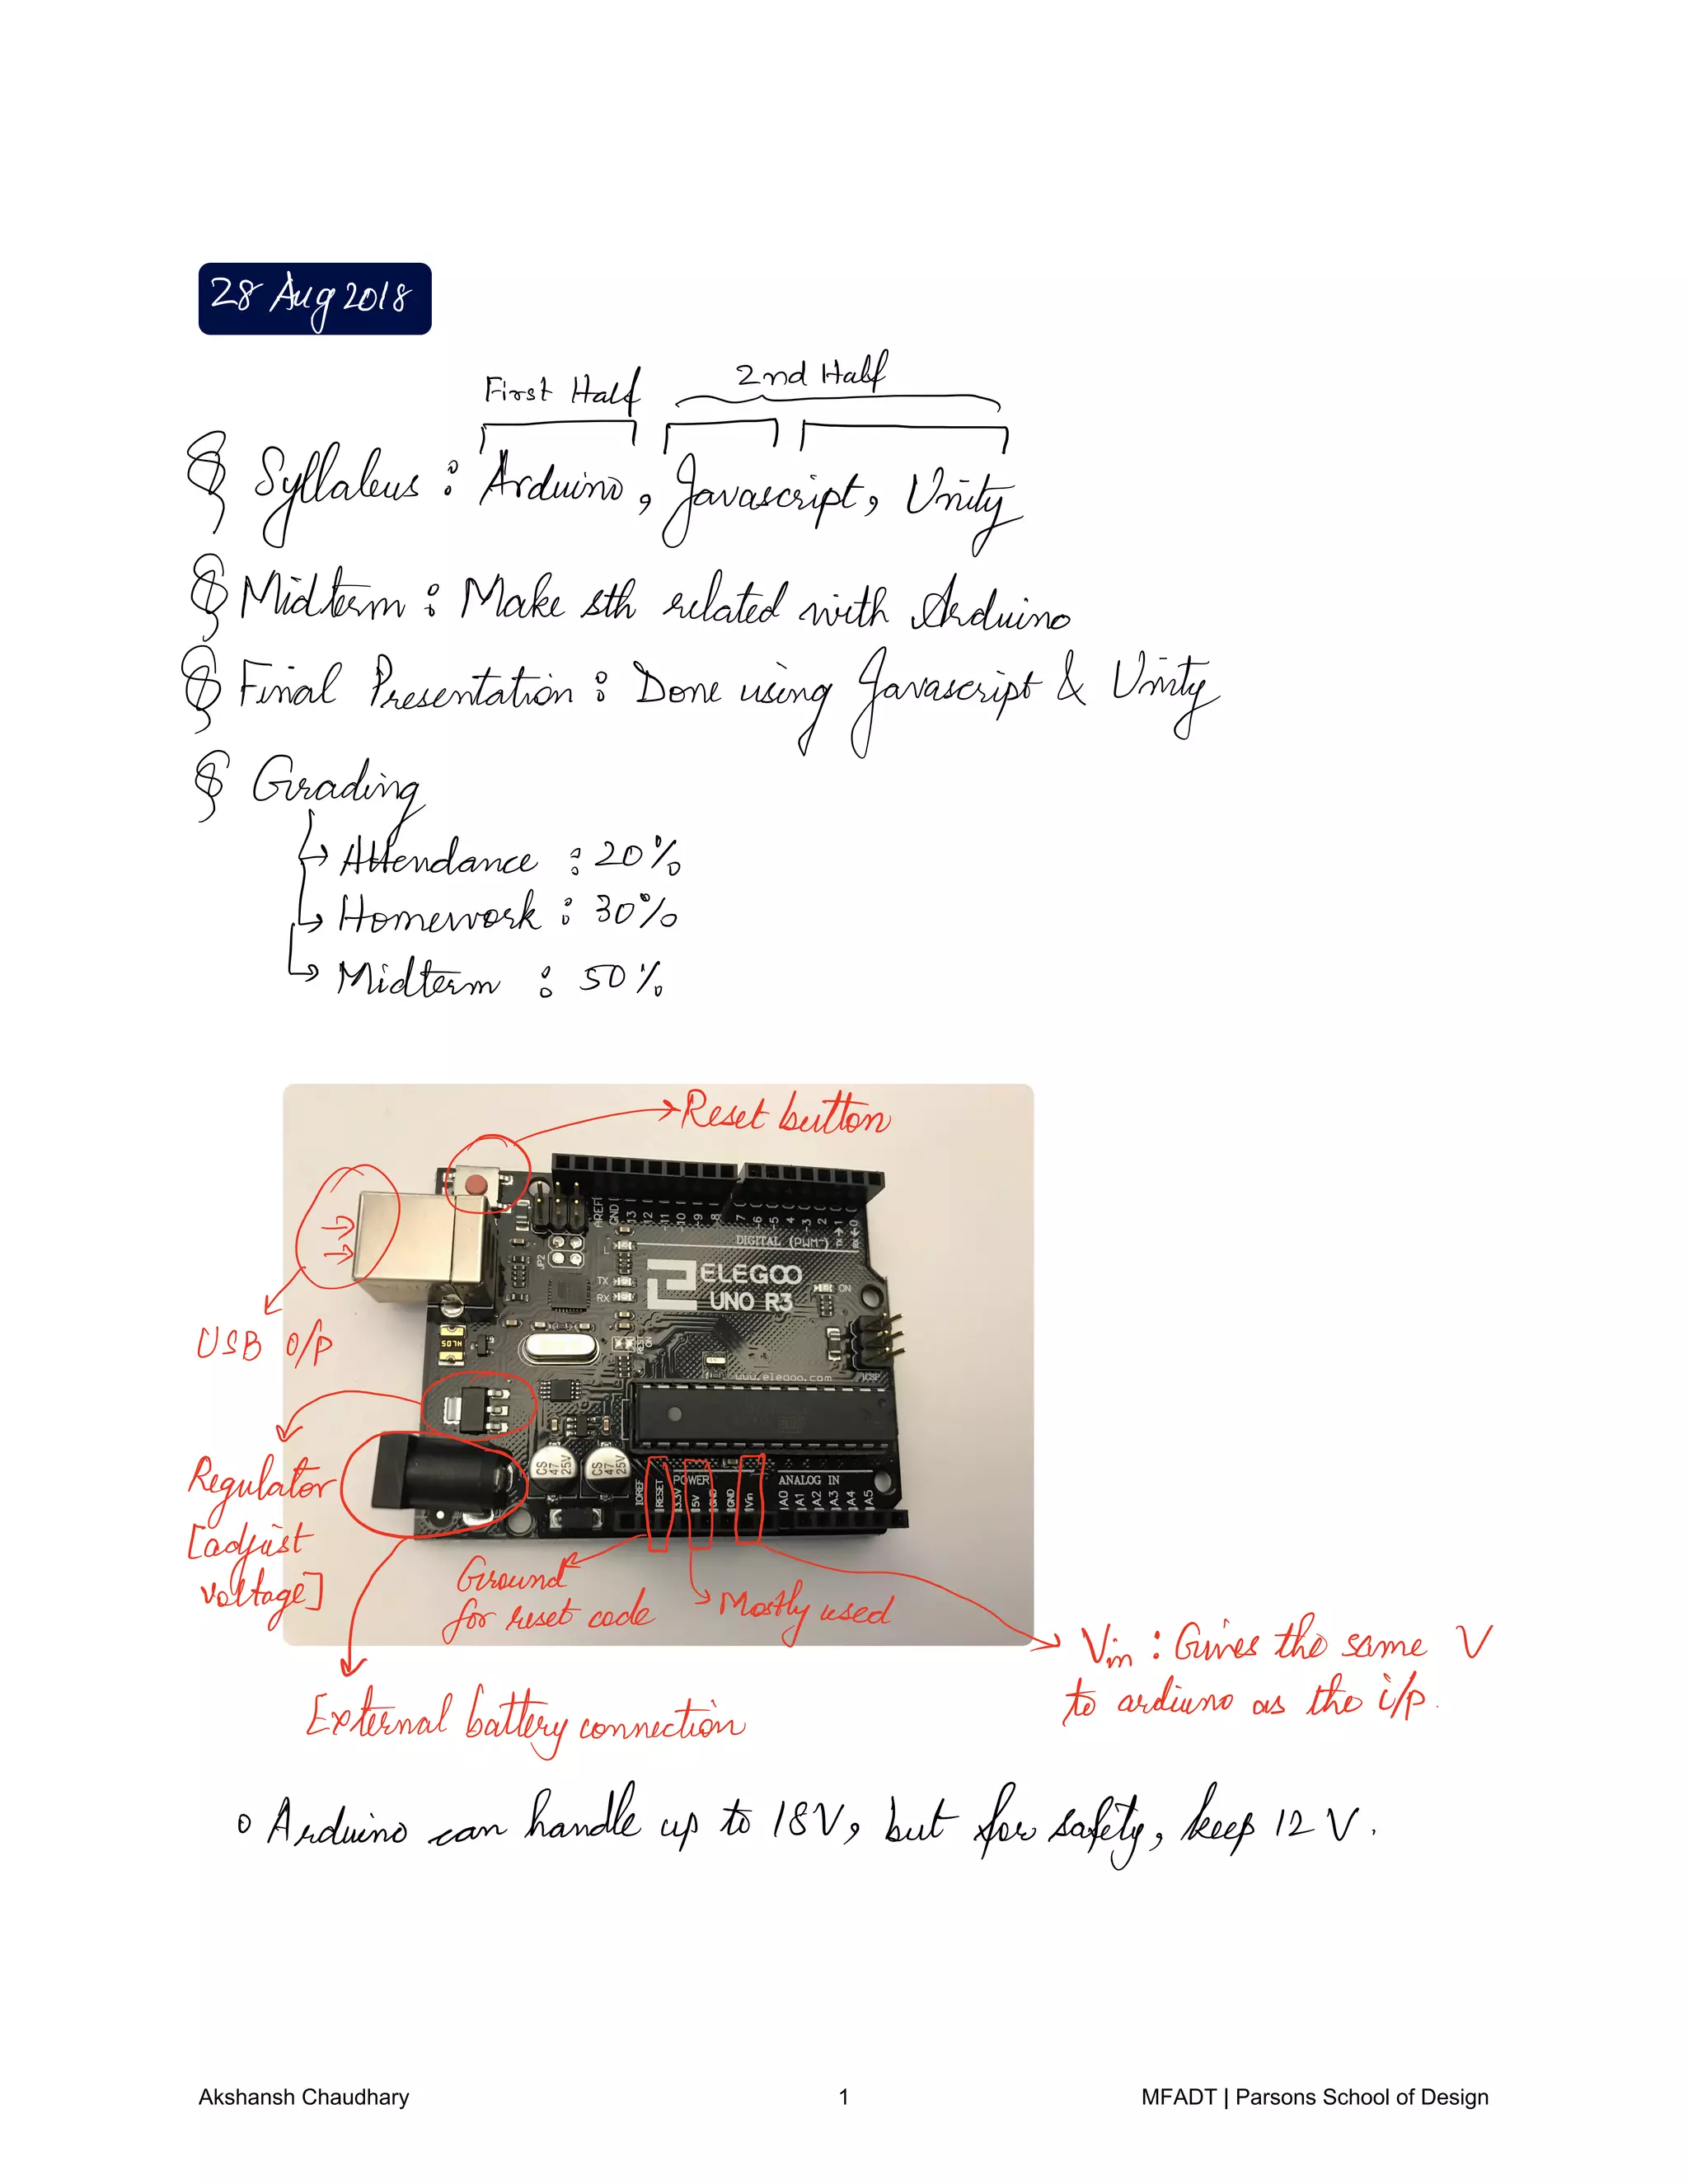 28 Aug 2018
First Half
2nd Half
Syllabus : Arduino, Javascript, Unity
Midterm : Make sth related with Arduino
Final Presentation : Done using Javascript & Unity
Grading
Attendance : 20%
Homework : 30%
Midterm : 50%
Reset button
AREF
GND
13
12
~11
~10
~9
8
7
~6
~5
4
~3
2
TX→1
RX←0
DIGITAL (PWM~)
JP2
L
TX
RX
ELEGOO
UNO R3
ON
USB O/P
www.elegoo.com
ICSP
CS
47
25V
CS
47
25V
Regulator
[adjust
voltage]
POWER
ANALOG IN
IOREF
RESET
3.3V
5V
GND
GND
Vin
A0
A1
A2
A3
A4
A5
Ground
for reset code
Mostly used
Vin : Gives the same V
to arduino as the i/p.
External battery connection
Arduino can handle up to 18V, but for safety, keep 12 V.
Akshansh Chaudhary
1
MFADT | Parsons School of Design